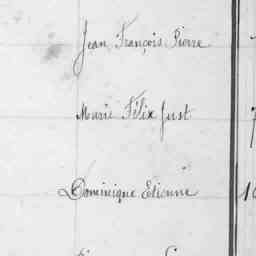 Jean François Pierre
Marie Félix Just
Dominique Etienne